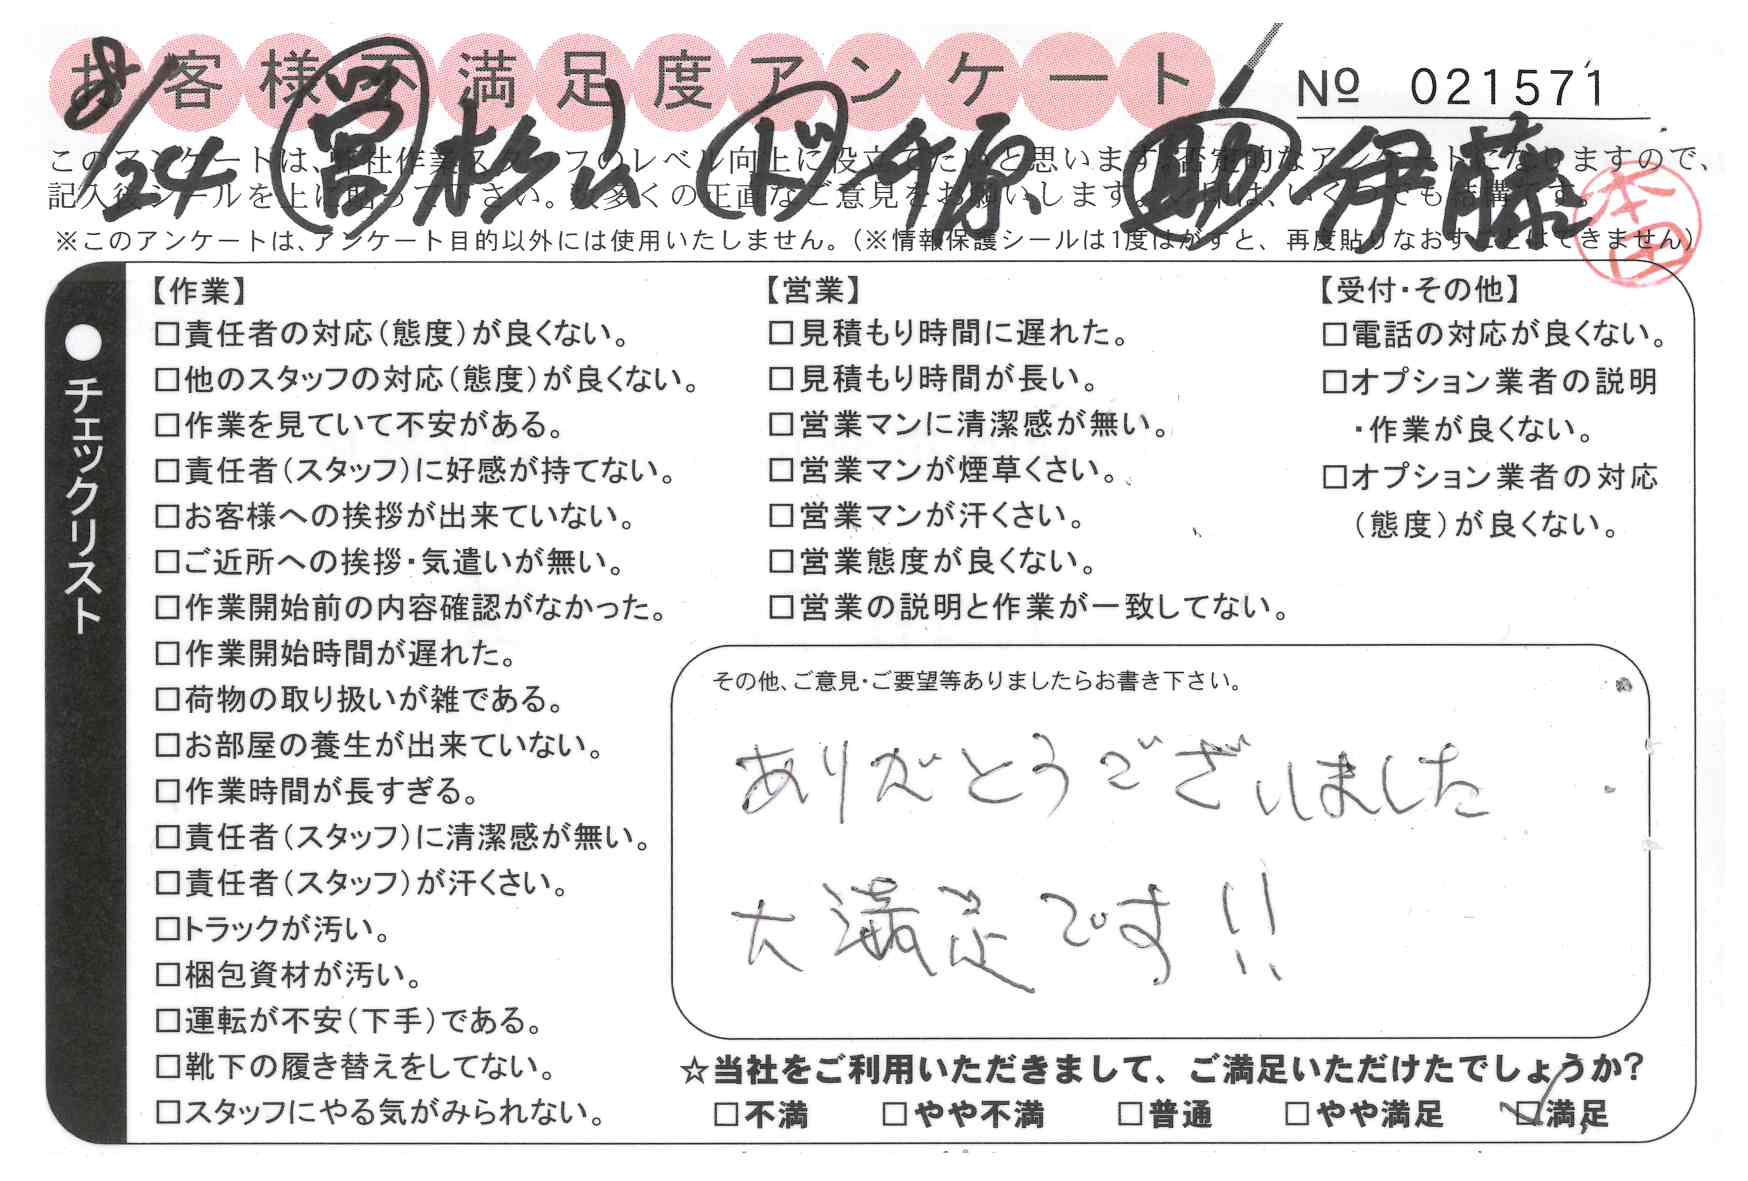 お客様不満足度アンケート
No 021571
8/24 営 杉山 ド 原 助 伊藤
本田
このアンケートは、弊社作業スタッフのレベル向上に役立てたいと思います。否定的なアンケートになりますので、
記入後シールを上に貼って下さい。数多くの正直なご意見をお願いします。 印は、いくつでも結構です。
※このアンケートは、アンケート目的以外には使用いたしません。(※情報保護シールは1度はがすと、再度貼りなおすことはできません)
●チェックリスト
【作業】
□責任者の対応(態度)が良くない。
□他のスタッフの対応(態度)が良くない。
□作業を見ていて不安がある。
□責任者(スタッフ)に好感が持てない。
□お客様への挨拶が出来ていない。
□ご近所への挨拶・気遣いが無い。
□作業開始前の内容確認がなかった。
□作業開始時間が遅れた。
□荷物の取り扱いが雑である。
□お部屋の養生が出来ていない。
□作業時間が長すぎる。
□責任者(スタッフ)に清潔感が無い。
□責任者(スタッフ)が汗くさい。
□トラックが汚い。
□梱包資材が汚い。
□運転が不安(下手)である。
□靴下の履き替えをしてない。
□スタッフにやる気がみられない。
【営業】
□見積もり時間に遅れた。
□見積もり時間が長い。
□営業マンに清潔感が無い。
□営業マンが煙草くさい。
□営業マンが汗くさい。
□営業態度が良くない。
□営業の説明と作業が一致してない。
【受付・その他】
□電話の対応が良くない。
□オプション業者の説明
・作業が良くない。
□オプション業者の対応
(態度)が良くない。
その他、ご意見・ご要望等ありましたらお書き下さい。
ありがとうございました
大満足です!!
☆当社をご利用いただきまして、ご満足いただけたでしょうか?
□不満 □やや不満 □普通 □やや満足 ☑満足